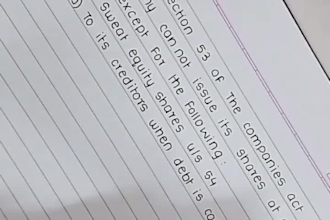 ection 53 of The companies act
ny can not issue its shares at
except for the following:
sweat equity shares u/s 54
) To its creditors when debt is co